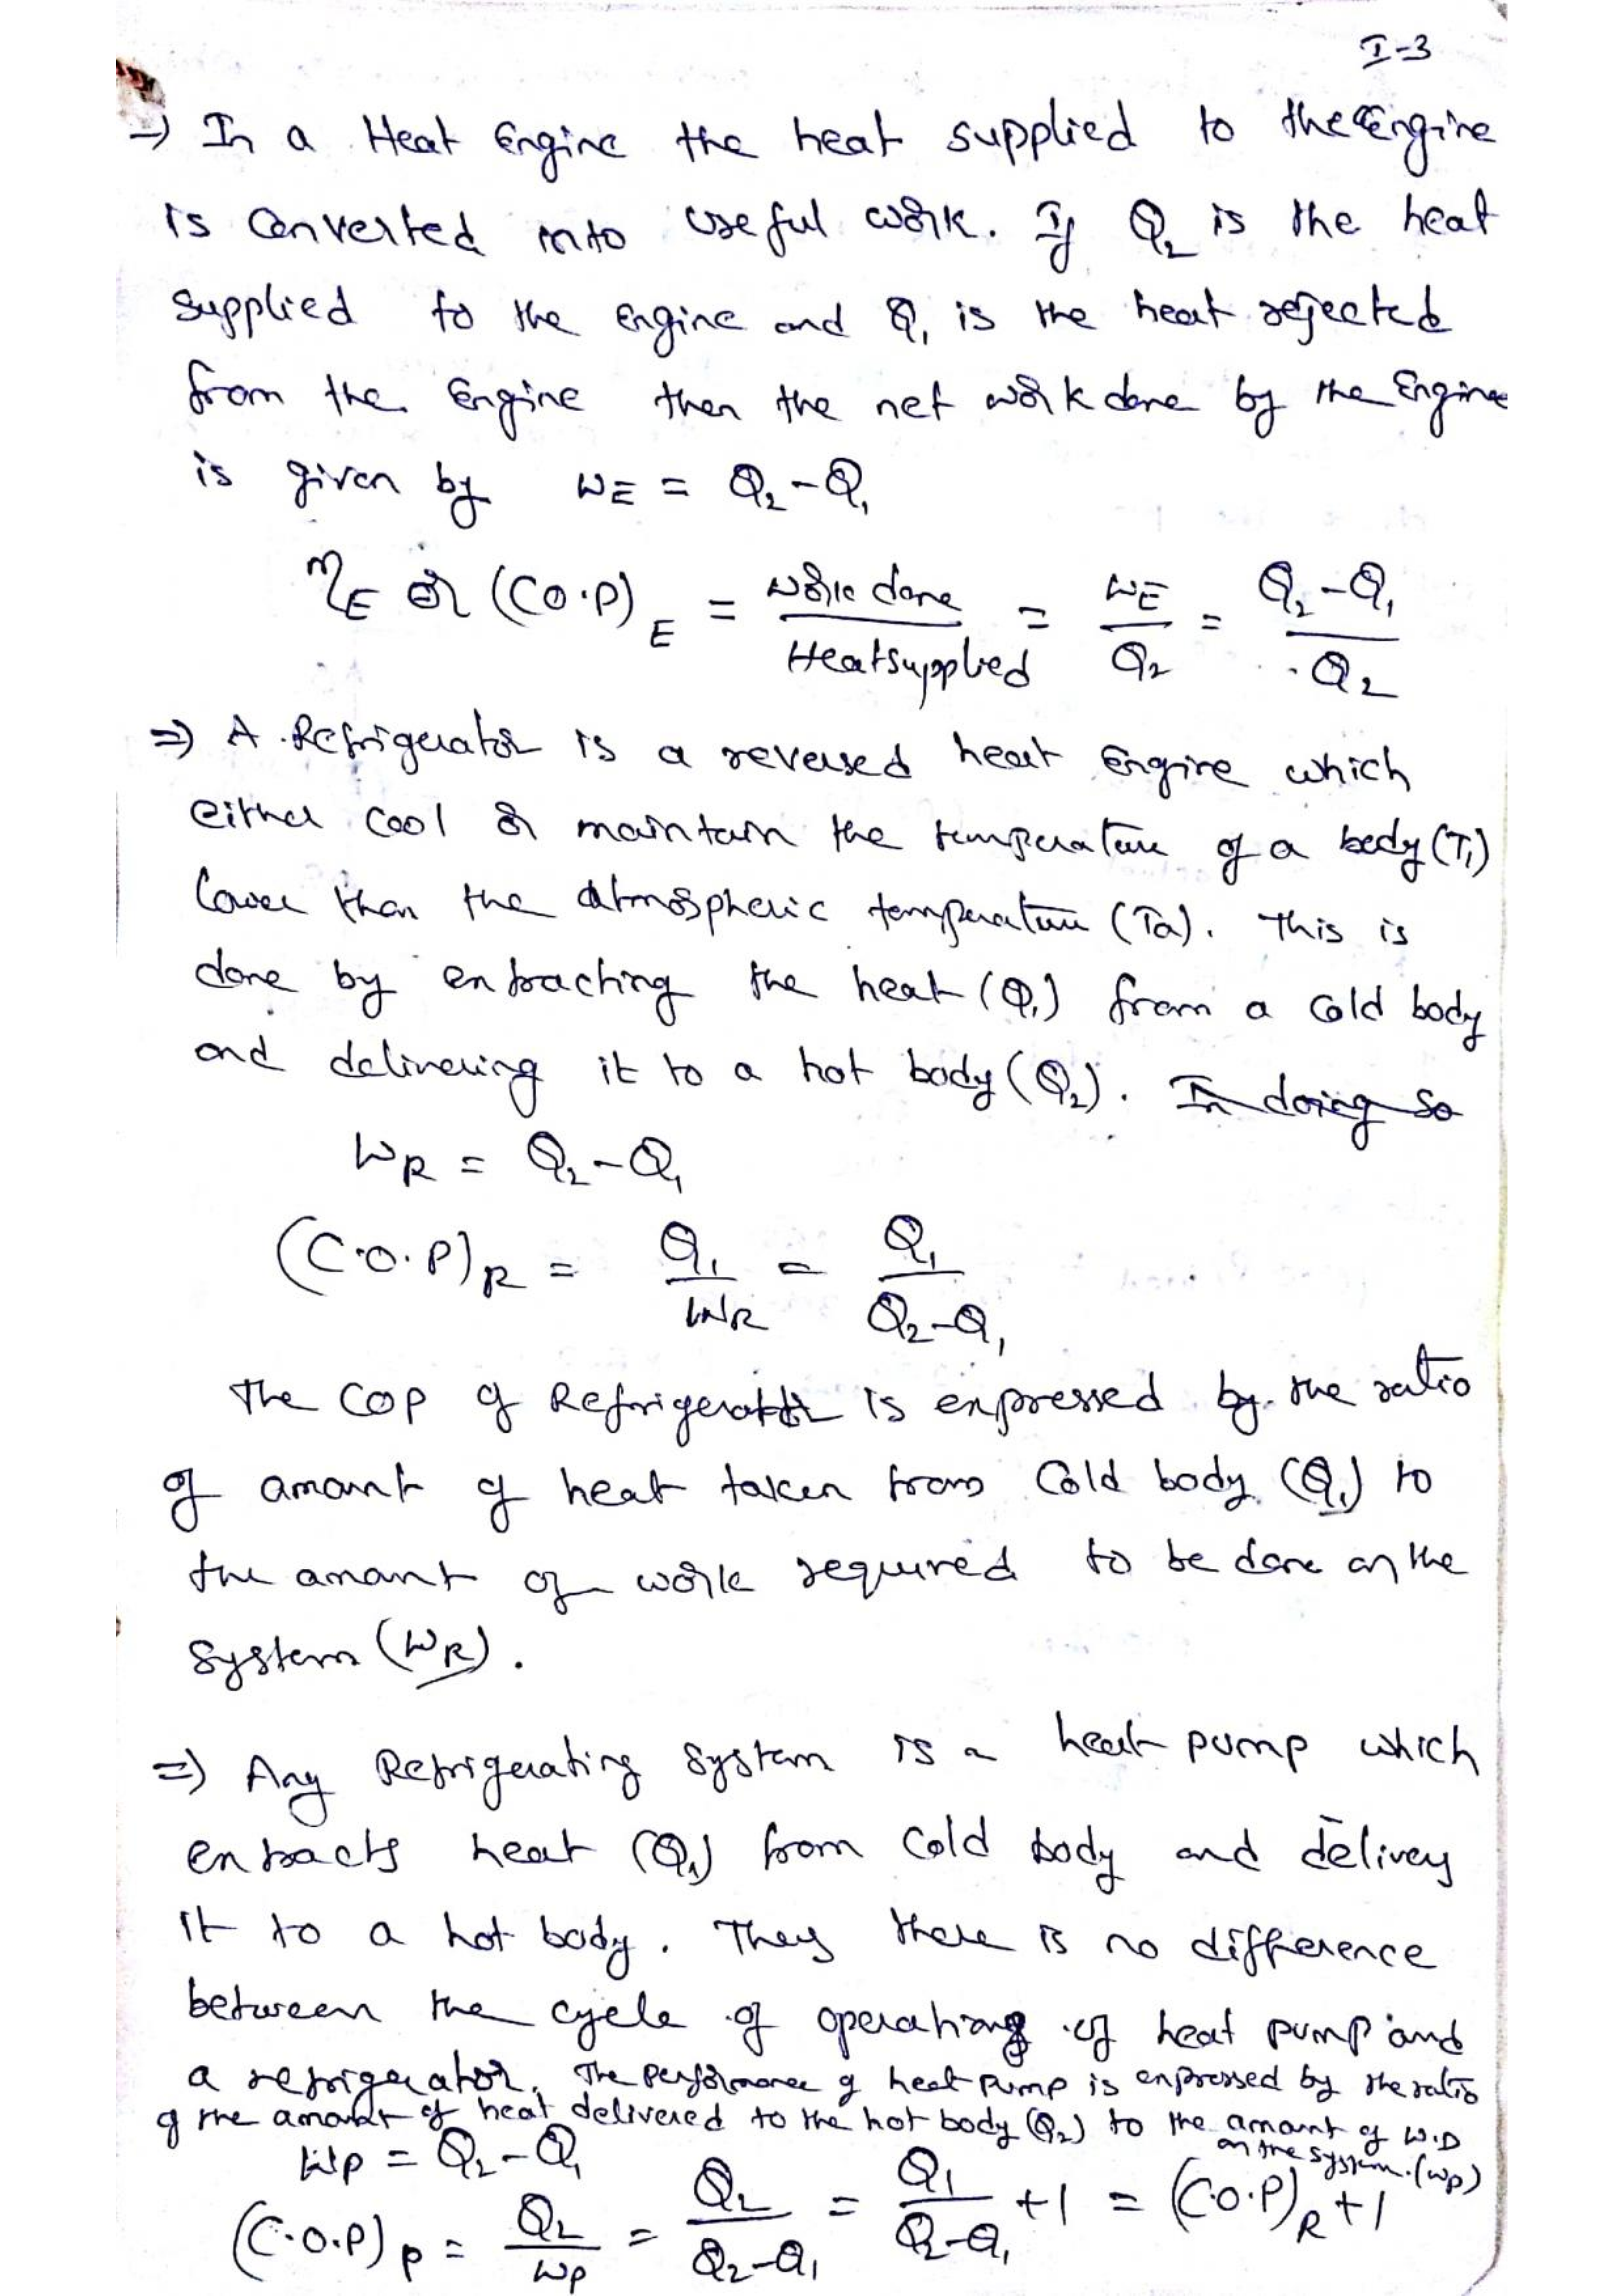 I-3
⇒ In a Heat Engine the heat supplied to the Engine
is Converted into useful work. If Q₂ is the heat
supplied to the engine and Q₁ is the heat rejected
from the Engine then the net work done by the Engine
is given by W_E = Q₂-Q₁
η_E or (C.O.P)_E = Work done / Heat supplied = W_E / Q₂ = Q₂-Q₁ / Q₂
⇒ A Refrigerator is a reversed heat Engine which
either cool or maintain the temperature of a body (T₁)
lower than the atmospheric temperature (Ta). This is
done by extracting the heat (Q₁) from a cold body
and delivering it to a hot body (Q₂). In doing so
W_R = Q₂-Q₁
(C.O.P)_R = Q₁ / W_R = Q₁ / Q₂-Q₁
The COP of Refrigerator is expressed by the ratio
of amount of heat taken from Cold body (Q₁) to
the amount of work required to be done on the
System (W_R).
⇒ Any Refrigerating System is a heat pump which
extracts heat (Q₁) from Cold body and delivery
it to a hot body. They there is no difference
between the cycle of operations of heat pump and
a refrigerator. The performance of heat pump is expressed by the ratio
of the amount of heat delivered to the hot body (Q₂) to the amount of W.D
on the system. (Wp)
W_P = Q₂-Q₁
(C.O.P)_P = Q₂ / W_P = Q₂ / Q₂-Q₁ = Q₁ / Q₂-Q₁ +1 = (C.O.P)_R +1